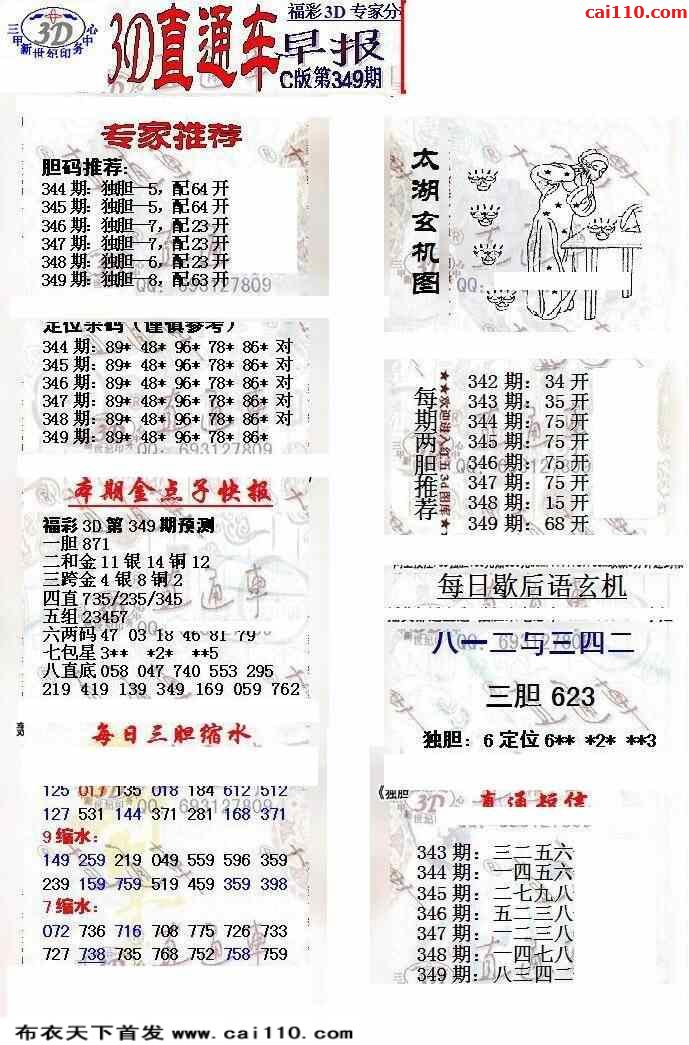 cai110.com
福彩3D 专家分
三甲 3D 中心
新世纪印务
3D直通车
早报
C版第349期
专家推荐
胆码推荐:
344期: 独胆—5, 配64开
345期: 独胆—5, 配64开
346期: 独胆—7, 配23开
347期: 独胆—7, 配23开
348期: 独胆—6, 配23开
349期: 独胆—8, 配63开
QQ: 693127809
定位杀码(谨慎参考)
344期: 89* 48* 96* 78* 86* 对
345期: 89* 48* 96* 78* 86* 对
346期: 89* 48* 96* 78* 86* 对
347期: 89* 48* 96* 78* 86* 对
348期: 89* 48* 96* 78* 86* 对
349期: 89* 48* 96* 78* 86*
QQ: 693127809
本期金点子快报
福彩3D第349期预测
一胆871
二和金11银14铜12
三跨金4银8铜2
四直735/235/345
五组23457
六两码47 03 18 46 81 79
七包星3** *2* **5
八直底058 047 740 553 295
219 419 139 349 169 059 762
每日三胆缩水
125 017 135 018 184 612 512
127 531 144 371 281 168 371
QQ: 693127809
9缩水:
149 259 219 049 559 596 359
239 159 759 519 459 359 398
7缩水:
072 736 716 708 775 726 733
727 738 735 768 752 758 759
太湖玄机图
QQ:
每期两胆推荐
★★欢迎进入红五3d图库★
342期: 34开
343期: 35开
344期: 75开
345期: 75开
346期: 75开
347期: 75开
348期: 15开
349期: 68开
每日歇后语玄机
八一二与三四二
三胆 623
独胆: 6 定位6** *2* **3
《独胆
直通短信
343期: 三二五六
344期: 一四五六
345期: 二七九八
346期: 五二三八
347期: 一二三八
348期: 一四七八
349期: 八三四二
布衣天下首发 www.cai110.com